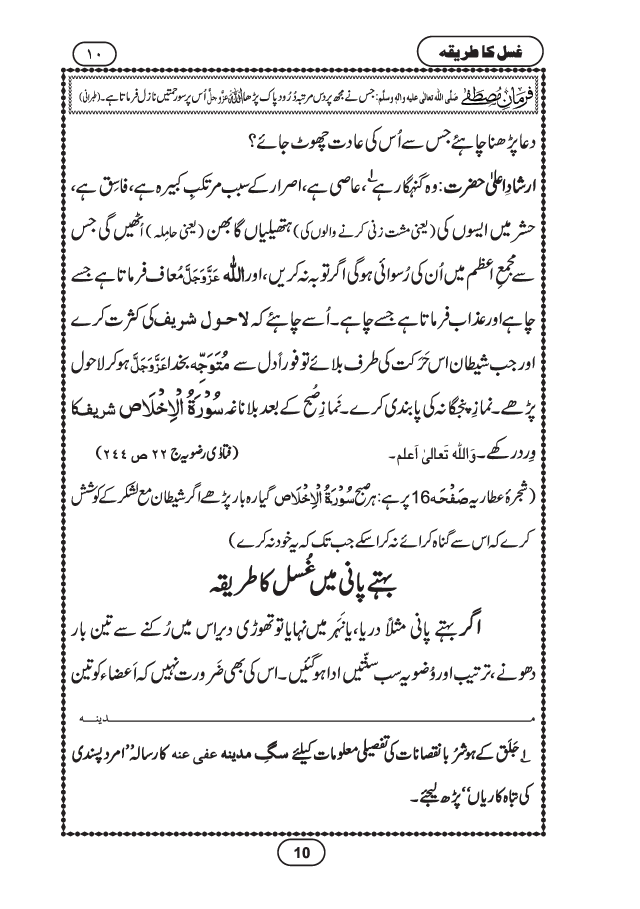 غسل کا طریقہ
۱۰
فرمانِ مصطفٰے صلی اللہ تعالیٰ علیہ والہٖ وسلّم: جس نے مجھ پر دس مرتبہ دُرُود پاک پڑھا اللہ عزوجل اُس پر سو رحمتیں نازل فرماتا ہے۔ (طبرانی)
دعا پڑھنا چاہئے جس سے اُس کی عادت چھوٹ جائے؟
ارشادِ اعلیٰ حضرت: وہ گنہگار ہے۱؎، عاصی ہے، اصرار کے سبب مرتکبِ کبیرہ ہے، فاسِق ہے،
حشر میں ایسوں کی (یعنی مشت زنی کرنے والوں کی) ہتھیلیاں گابھن (یعنی حامِلہ) اُٹھیں گی جس
سے مجمعِ اعظم میں اُن کی رُسوائی ہوگی اگر توبہ نہ کریں، اور اللہ عَزَّوَجَلَّ مُعاف فرماتا ہے جسے
چاہے اور عذاب فرماتا ہے جسے چاہے۔ اُسے چاہئے کہ لاحول شریف کی کثرت کرے
اور جب شیطان اس حَرَکت کی طرف بلائے تو فوراً دل سے مُتَوَجِّہ بخدا عَزَّوَجَلَّ ہو کر لاحول
پڑھے۔ نمازِ پنجگانہ کی پابندی کرے۔ نَمازِ صُبح کے بعد بلا ناغہ سُوْرَۃُ الْاِخْلَاص شریف کا
وِرد رکھے۔ وَاللہ تَعالیٰ اَعلم۔ (فتاوٰی رضویہ ج ۲۲ ص ۲۴۴)
(شجرۂ عطاریہ صَفْحَہ 16 پر ہے: ہر صبح سُوْرَۃُ الْاِخْلَاص گیارہ بار پڑھے اگر شیطان مع لشکر کے کوشش
کرے کہ اس سے گناہ کرائے نہ کرا سکے جب تک کہ یہ خود نہ کرے)
بہتے پانی میں غُسل کا طریقہ
اگر بہتے پانی مثلاً دریا، یا نَہَر میں نہایا تو تھوڑی دیر اس میں رُکنے سے تین بار
دھونے، ترتیب اور وُضو یہ سب سنّتیں ادا ہو گئیں۔ اس کی بھی ضَرورت نہیں کہ اَعضاء کو تین
مدینہ
۱؎ جَلَق کے ہوشرُبا نقصانات کی تفصیلی معلومات کیلئے سگِ مدینہ عفی عنہ کا رسالہ ”امرد پسندی
کی تباہ کاریاں“ پڑھ لیجئے۔
10